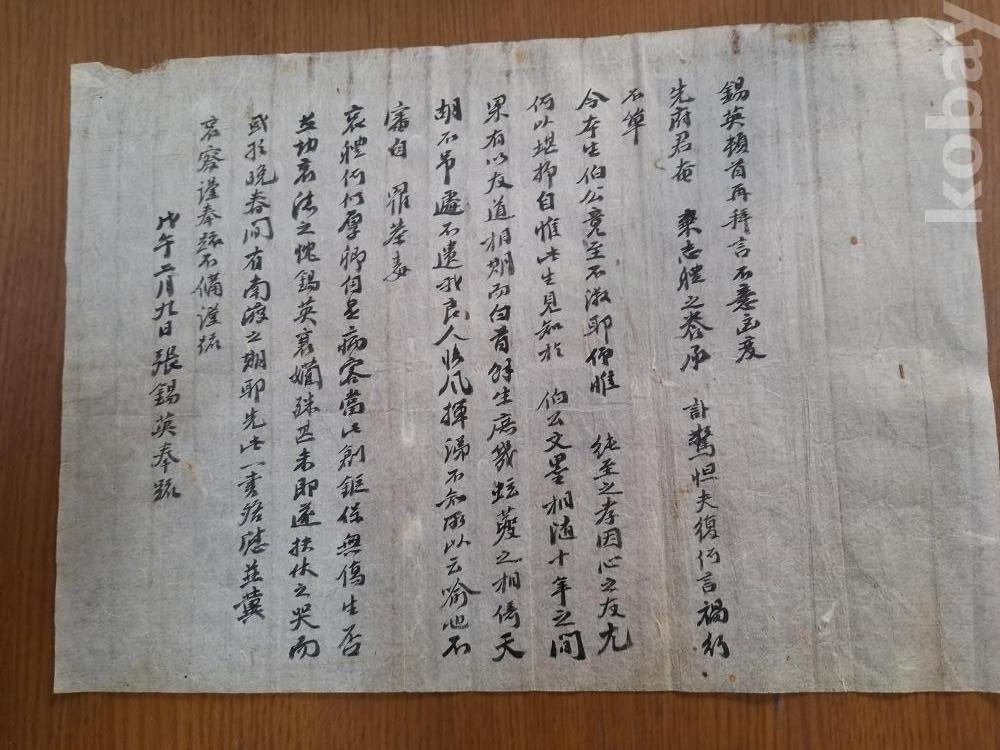 錫英頓首再拜言不意凶變
先府君奄 棄志體之養承 訃驚怛夫復何言禍行
不單
今本生伯公竟至不淑耶仰惟 純至之孝因心之友尤
何以堪抑自惟此生見知於 伯公文墨相隨十年之間
果有以友道相期而白首餘生庶幾蛩蟨之相倚天
胡不吊遽不遺我良人臨風揮涕不知所以云喻也不
審自 罹荼毒
哀體何似孱脆自是病客當此創鉅保無傷生否
錫英衰懶殊甚未卽遂扶伏之哭而
或於晩春間有南渡之期耶先此一書替慰並冀
哀察謹奉疏不備謹疏
戊午二月九日張錫英奉疏
kobay